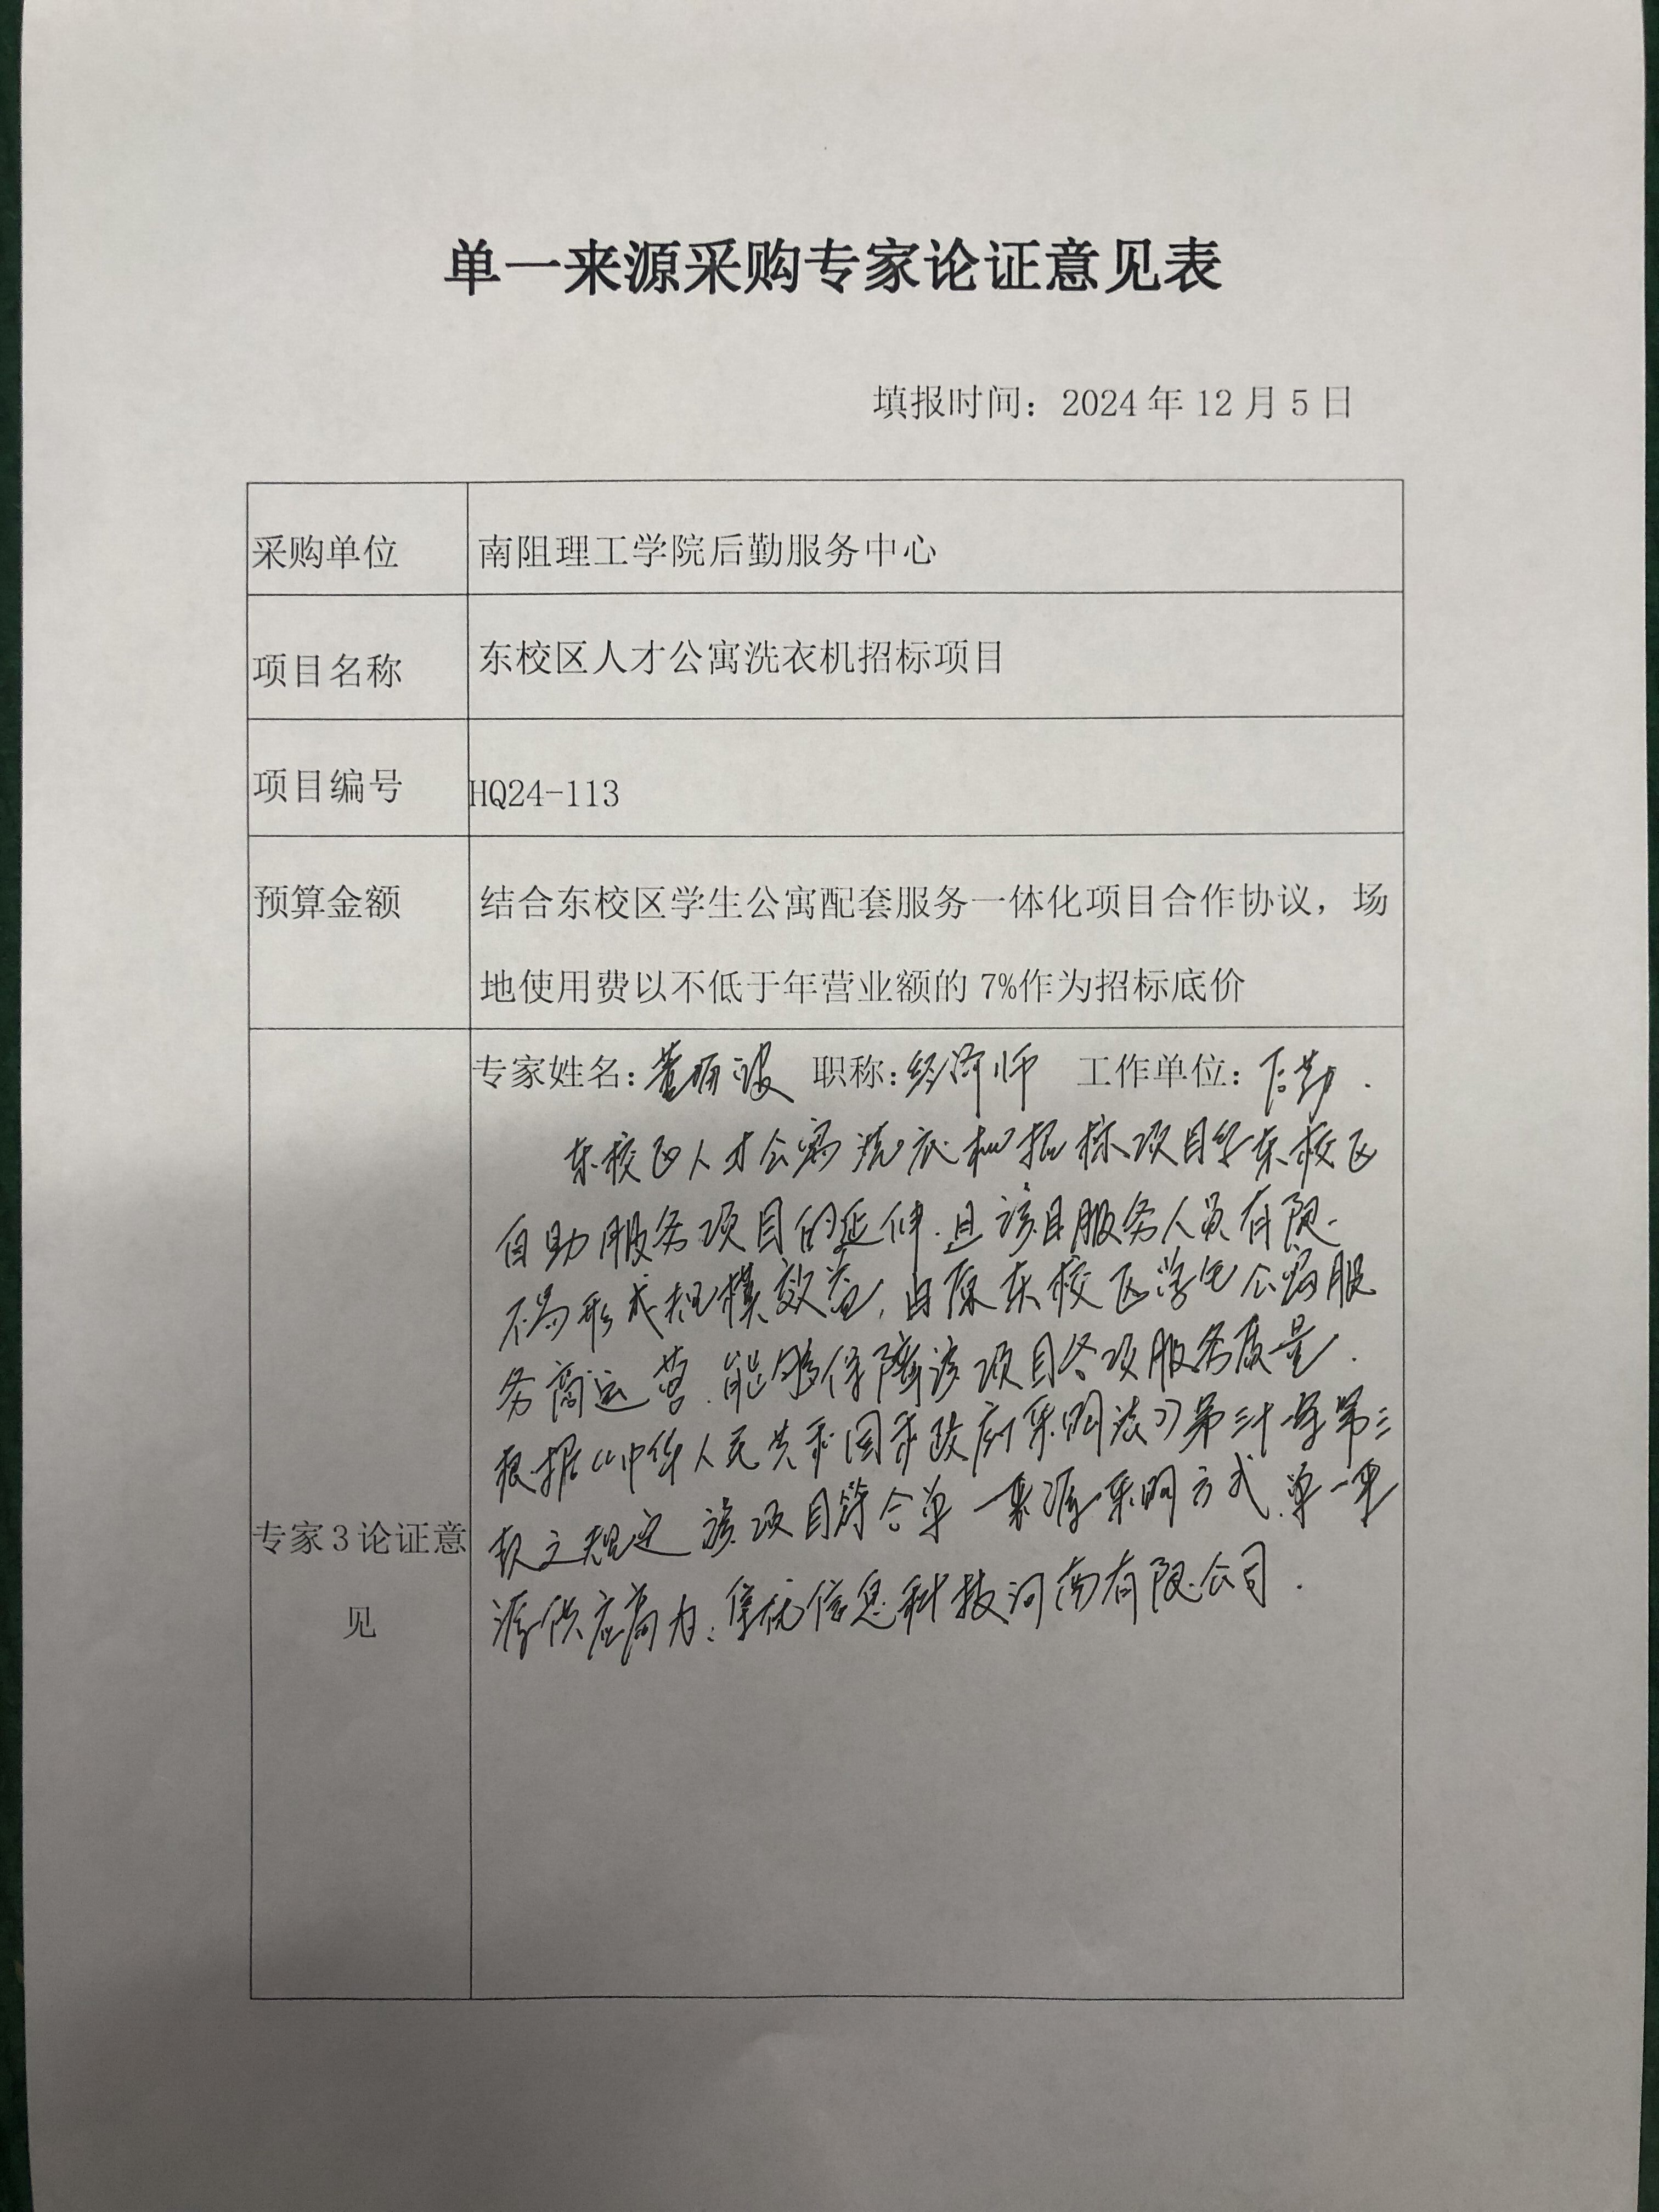 单一来源采购专家论证意见表
填报时间：2024年12月5日
采购单位
南阻理工学院后勤服务中心
项目名称
东校区人才公寓洗衣机招标项目
项目编号
HQ24-113
预算金额
结合东校区学生公寓配套服务一体化项目合作协议，场
地使用费以不低于年营业额的7%作为招标底价
专家3论证意
见
专家姓名：董丽波 职称：经济师 工作单位：后勤.
东校区人才公寓洗衣机招标项目 东校区
自助服务项目的延伸.且该 服务人员有限.
不易形成规模效益,由原东校区学生公寓服
务商运营.能够保障该项目各项服务质量.
根据《中华人民共和国 政府采购法》第三十一条第三
款之规定 该项目符合单一来源采购方式.单一来
源供应商为:隼优信息科技河南有限公司.